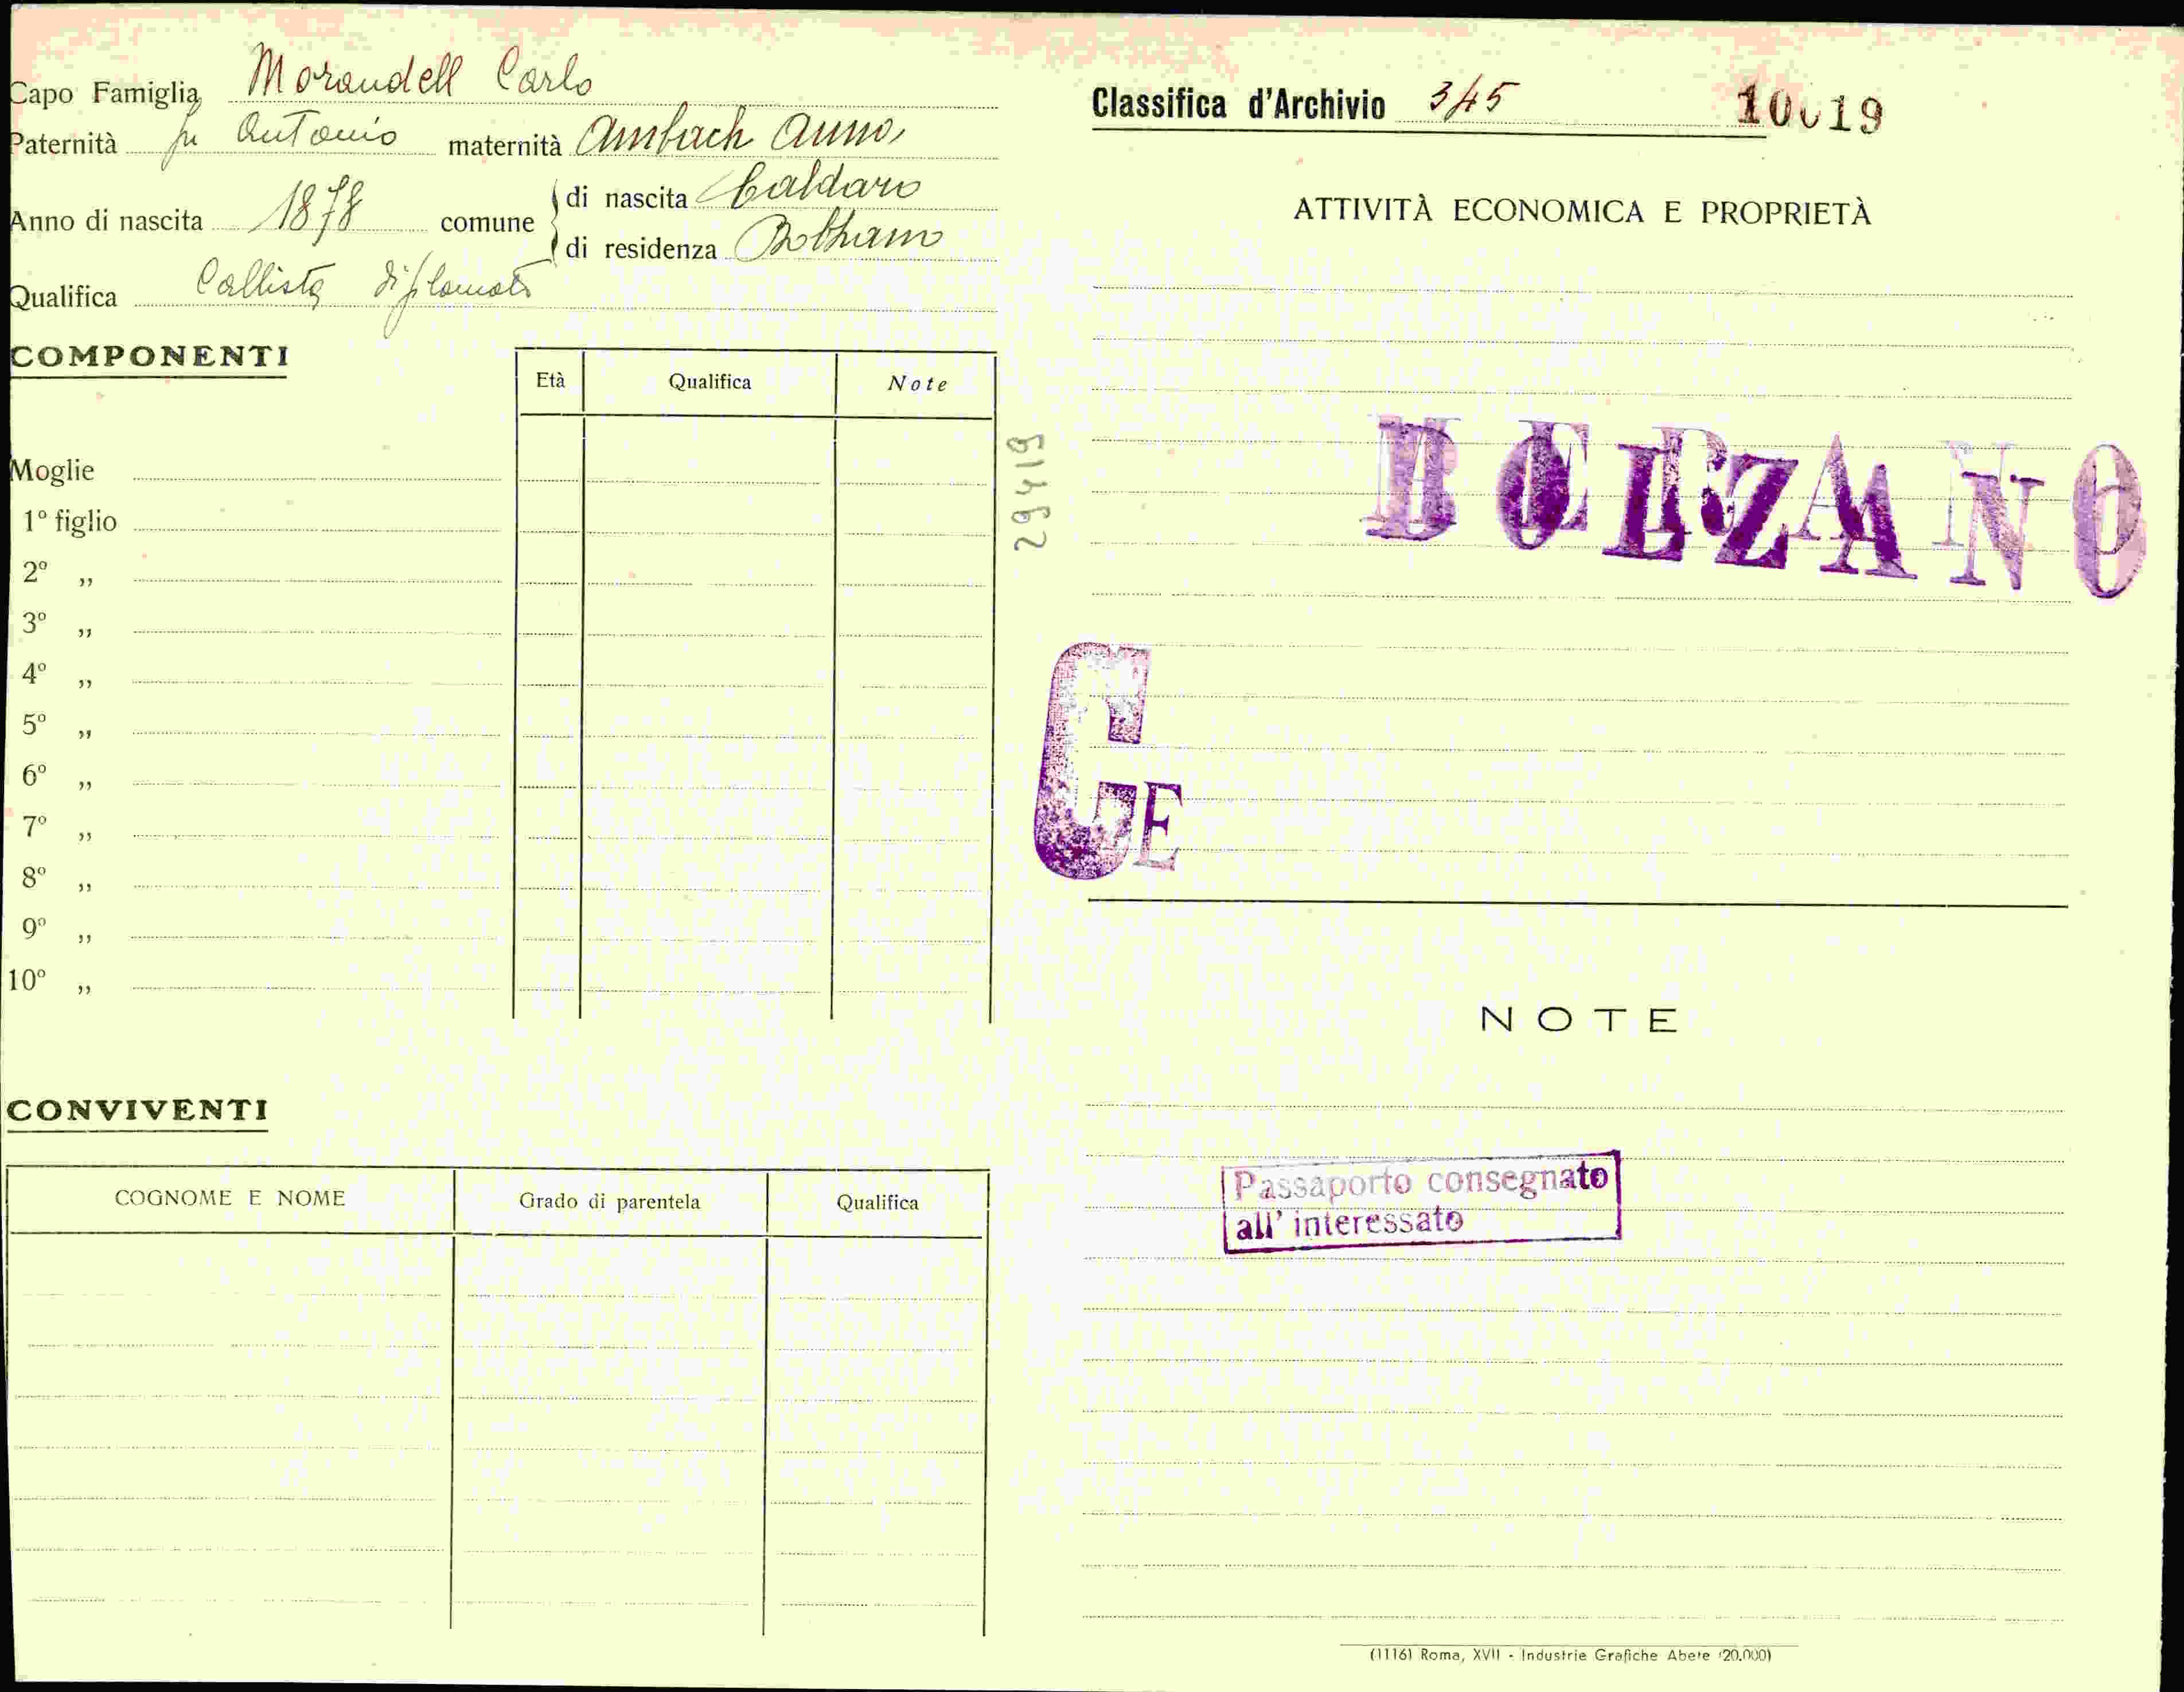 Capo Famiglia Morandell Carlo
Paternità fu Antonio maternità Ambach Anna
Anno di nascita 1878 comune di nascita Caldaro
di residenza Bolzano
Qualifica Callista diplomato
COMPONENTI
Età Qualifica Note
Moglie
1º figlio
2º „
3º „
4º „
5º „
6º „
7º „
8º „
9º „
10º „
CONVIVENTI
COGNOME E NOME Grado di parentela Qualifica
29419
Classifica d'Archivio 345 10019
ATTIVITÀ ECONOMICA E PROPRIETÀ
BOLZANO
G E
NOTE
Passaporto consegnato
all' interessato
(1116) Roma, XVII - Industrie Grafiche Abete (20.000)